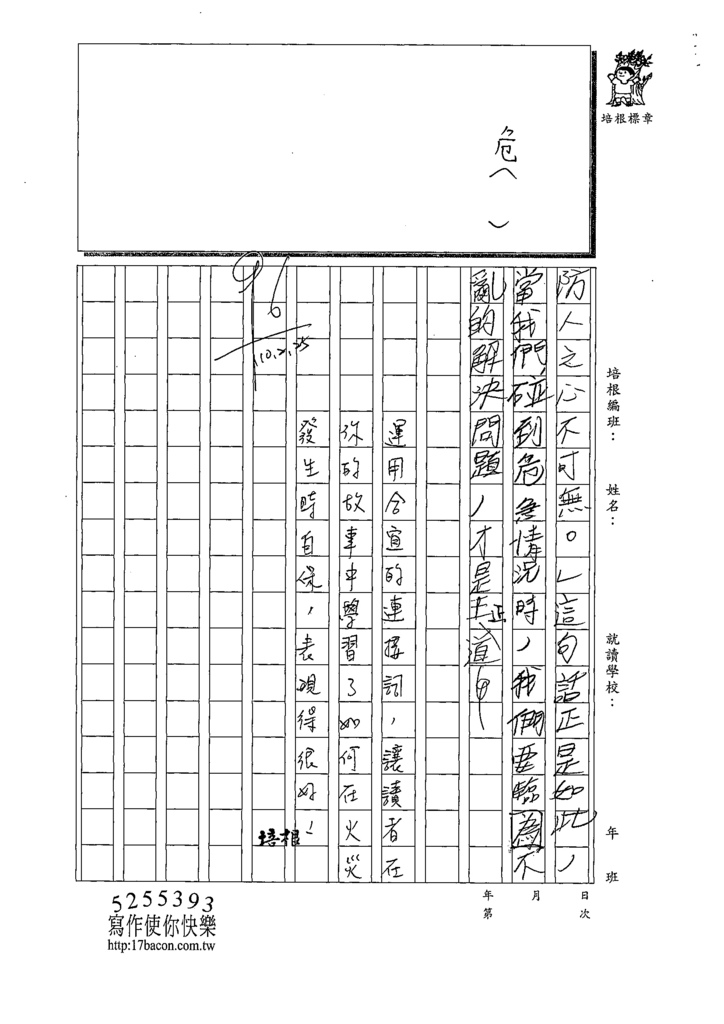 培根標章
危︵　︶
防人之心不可無。」這句話正是如此，
當我們碰到危急情況時，我們要臨為不
亂的解決問題，才是正道。
運用合宜的連接詞，讓讀者在
你的故事中學習了如何在火災
發生時自保，表現得很好！
培根
96
110.2.25
培根編班：
姓名：
就讀學校：
年 班
年 月 日
第 次
5255393
寫作使你快樂
http:17bacon.com.tw